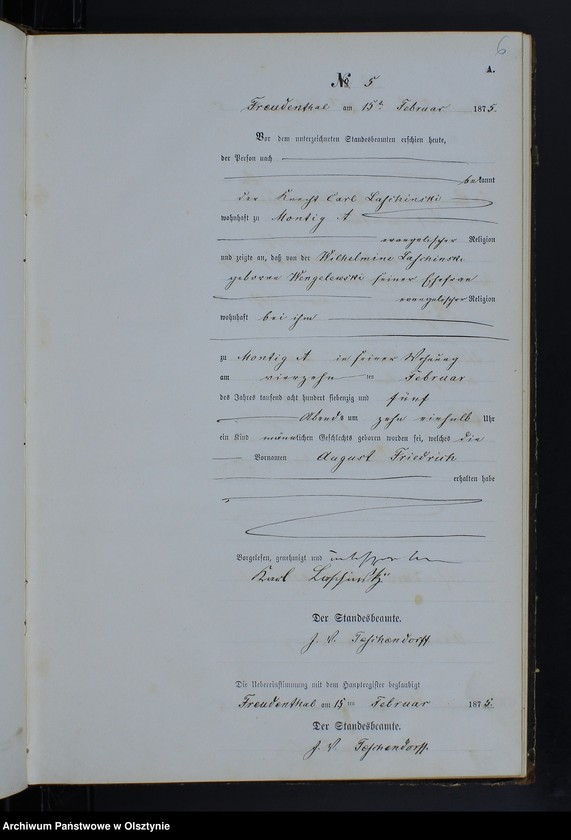 6
A.
№ 5
Freudenthal am 15ten Februar 1875.
Vor dem unterzeichneten Standesbeamten erschien heute,
der Person nach
bekannt
der Knecht Carl Laschinski
wohnhaft zu Montig A
evangelischer Religion
und zeigte an, daß von der Wilhelmine Laschinski
geborene Wengelewski seiner Ehefrau
evangelischer Religion
wohnhaft bei ihm
zu Montig A. in seiner Wohnung
am vierzehn ten Februar
des Jahres tausend acht hundert siebenzig und fünf
Abends um zehn einhalb Uhr
ein Kind männlichen Geschlechts geboren worden sei, welches die
Vornamen August Friedrich
erhalten habe
Vorgelesen, genehmigt und
Karl Laschinsky
Der Standesbeamte.
J. V. Teschendorff
Die Uebereinstimmung mit dem Hauptregister beglaubigt
Freudenthal am 15 ten Februar 1875.
Der Standesbeamte.
J. V. Teschendorff.
Archiwum Państwowe w Olsztynie